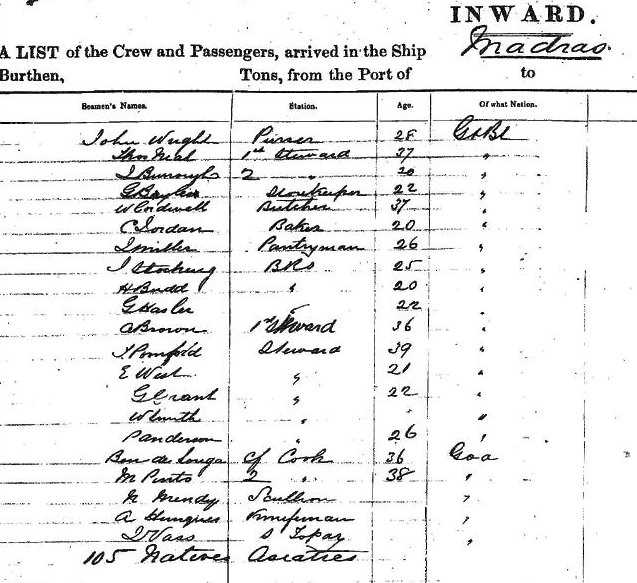 INWARD.
A LIST of the Crew and Passengers, arrived in the Ship Madras.
Burthen, Tons, from the Port of to
Seamen's Names. Station. Age. Of what Nation.
John Wright Purser 28 Gt Bt
Thos Neal 1st Steward 37 "
J Burrough 2 " 20 "
G Storekeeper 22 "
W Cordwell Butcher 37 "
C Jordan Baker 20 "
J Miller Pantryman 26 "
J Stocking BRs 25 "
H Budd " 20 "
G Hasler " 22 "
A Brown 1st Steward 36 "
J Steward 39 "
E West " 21 "
G Grant " 22 "
W Smith " "
P Anderson " 26 "
Ben de Souza Cf Cook 36 Goa
M Pinto 2 " 38 "
N Mendy Scullion "
A "
Vass Topaz "
105 Natives Asiatics